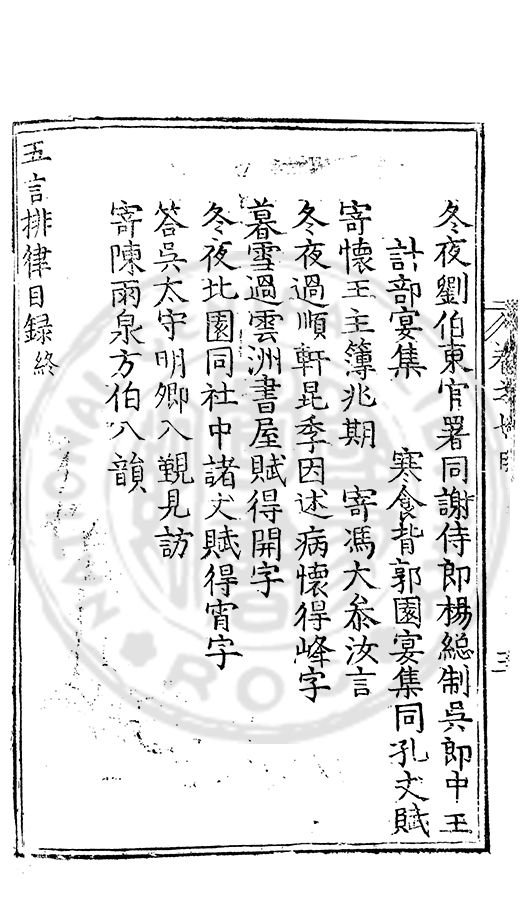 冬夜劉伯東官署同謝侍郎楊總制吳郎中王
計部宴集　寒食背郭園宴集同孔丈賦
寄懷王主簿兆期　寄馮大叅汝言
冬夜過順軒昆季因述病懷得峰字
暮雪過雲洲書屋賦得開字
冬夜北園同社中諸丈賦得宵字
答吳太守明卿入覲見訪
寄陳雨泉方伯八韻
五言排律目録終